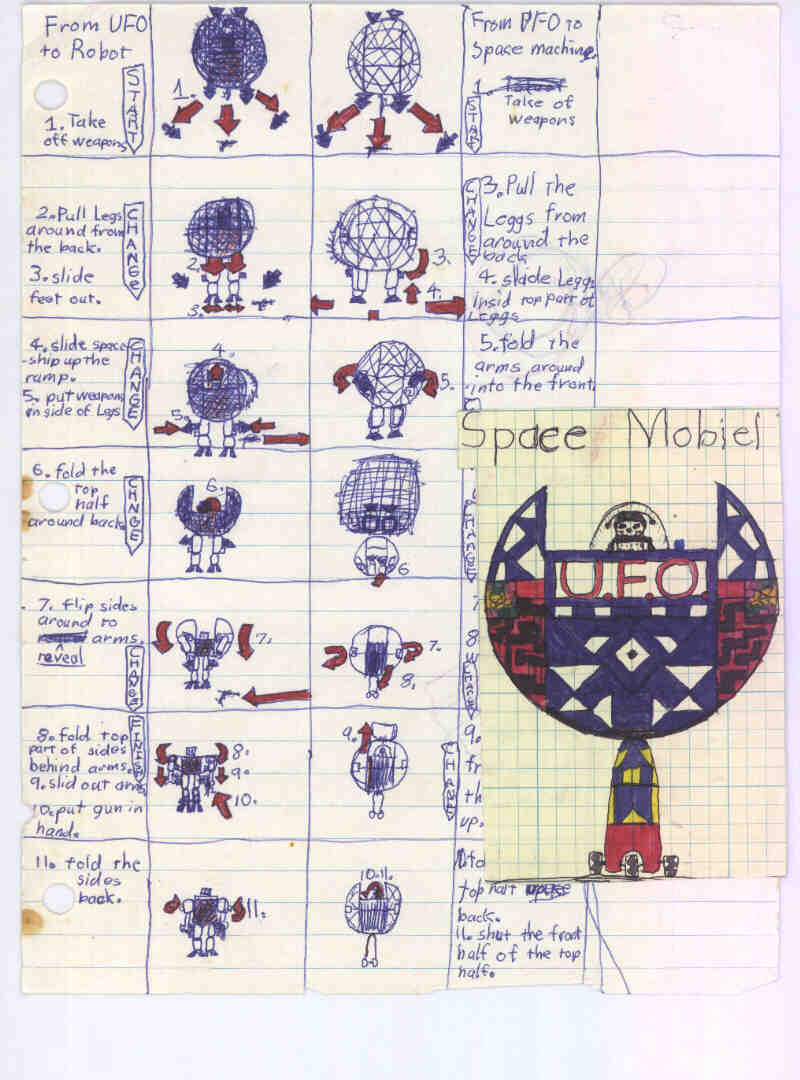 From UFO
to Robot
START
1. Take
off weapons
1.
2. Pull Legs
around from
the back.
3. slide
feet out.
CHANGE
2.
3.
4. slide space
-ship up the
ramp.
5. put weapons
on side of Legs
CHANGE
4.
5.
6. fold the
top
half
around back
CHNGE
6.
7. flip sides
around to
reveal
arms.
CHANGE
7.
8. fold top
part of sides
behind arms.
9. slid out arms
10. put gun in
hand.
FINISH
8.
9.
10.
11. fold the
sides
back.
11.
From UFO to
Space machine.
1.
Take of
weapons
START
3. Pull the
Leggs from
around the
back
4. slide Leggs
insid top part of
Leggs
CHANGE
3.
4.
5. fold the
arms around
into the front.
5.
CHANGE
6
7
8
7.
8.
9.
fr
th
up.
CHANGE
9.
top half
back.
11. shut the front
half of the top
half.
10. 11.
Space Mobiel
U.F.O.